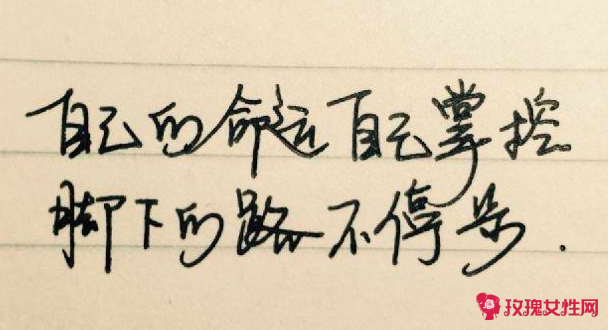 自己的命运自己掌控
脚下的路不停步.
玫瑰女性网